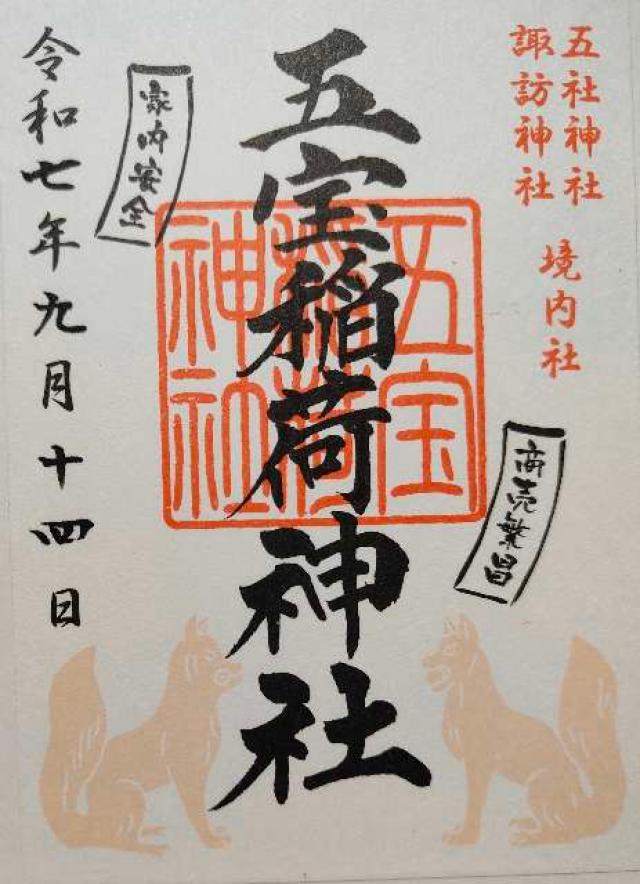 五社神社
諏訪神社
境内社
商売繁昌
五宝稲荷神社
五宝稲荷神社
家内安全
令和七年九月十四日